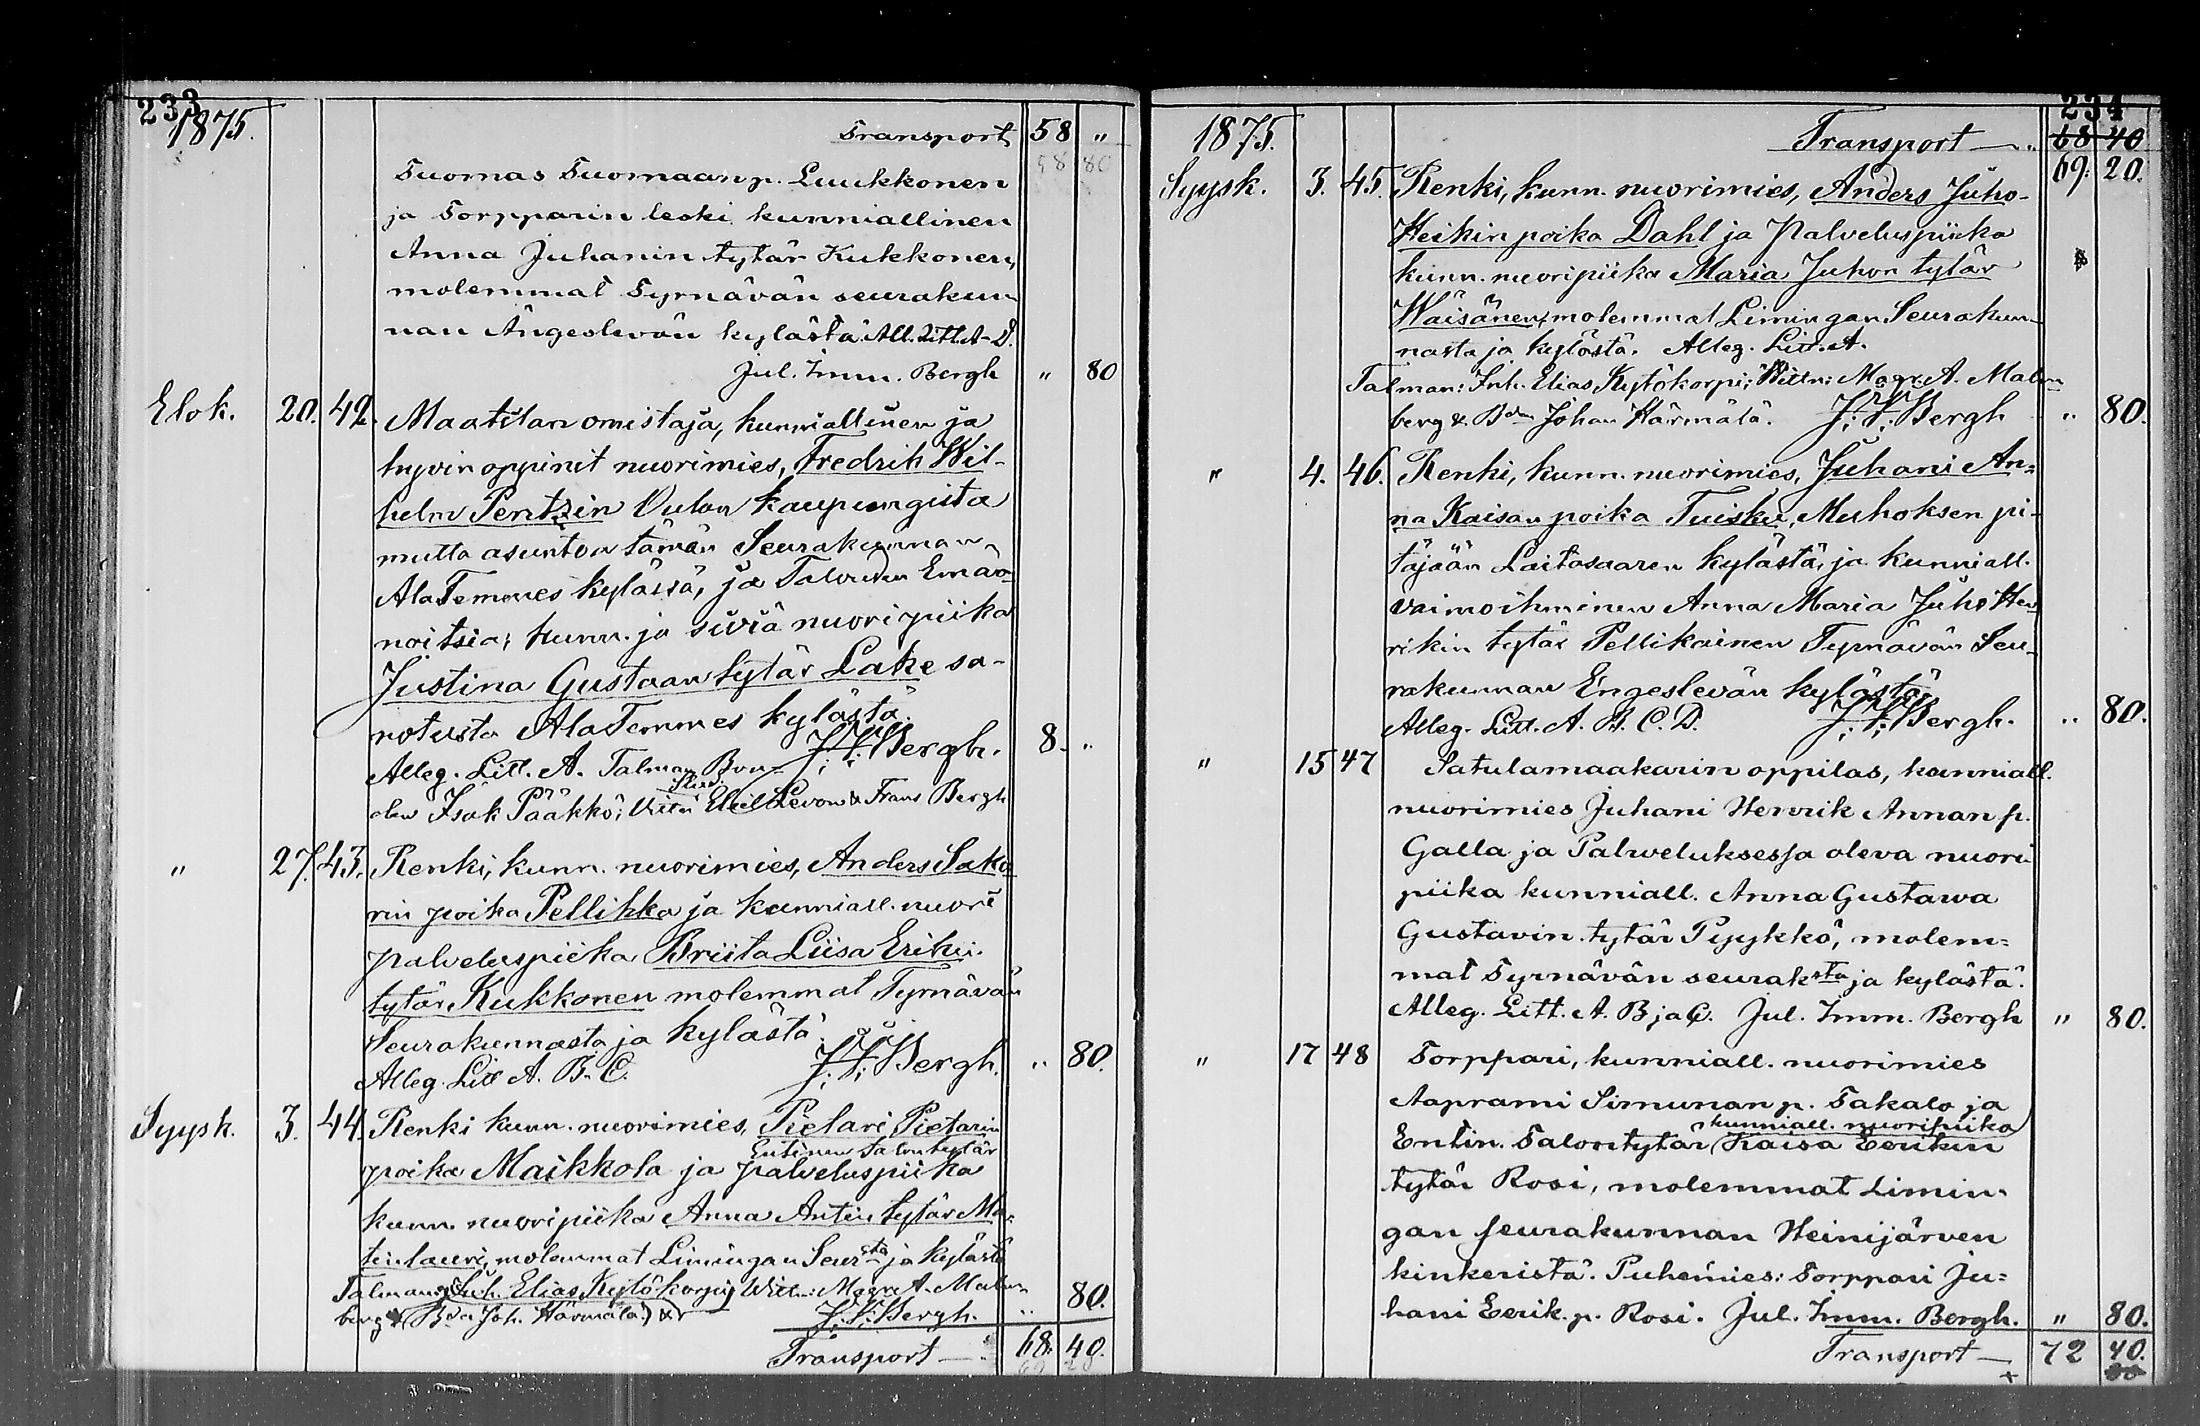 233
1875.
Transport 58 "
58 80
Tuomas Tuomaan p. Luukkonen
ja Torpparin leski kunniallinen
Anna Juhanin tytär Kukkonen,
molemmat Tyrnävän seurakun-
nan Ängeslevän kylästä. All. Litt. A-D.
Jul. Imm. Bergh " 80
Elok. 20. 42. Maatilan omistaja, kunniallinen ja
hyvin oppinit nuorimies, Fredrik Wil-
helm Pentzin Oulun kaupungista
mutta asuntoa tämän Seurakunnan
AlaTemmes kylässä, ja Talouden Emän-
noitsia, kunn. ja siviä nuori piika
Justina Gustaan tytär Lake sa-
notusta AlaTemmes kylästä.
Alleg. Litt. A. Talman Bon- J. I. Bergh. 8. "
den Isak Pääkkö; Vittn: Levon & Frans Bergh
" 27. 43. Renki, kunn. nuorimies, Anders Saka-
rin poika Pellikka ja kunniall. nuori
palveluspiika Briita Liisa Erikin
tytär Kukkonen molemmat Tyrnävän
Seurakunnasta ja kylästä.
Alleg. Litt A. B. C. J. I. Bergh. " 80.
Syysk. 3. 44. Renki kunn. nuorimies, Pietari Pietarin
Entinen Talontytär
poika Maikkola ja palveluspiika
kunn. nuoripiika Anna Antin tytär Ma-
tinlauri, molemmat Limingan Seursta ja kylästä
Talman: Inh. Elias Kytökorpi; Wittn: Magr A. Malm-
berg & Bdn Joh. Härmälä. J. I. Bergh. " 80.
Transport — 68. 40.
69 20
234
1875. Transport — 68 40
69. 20.
Syysk. 3. 45. Renki, kunn. nuorimies, Anders Juho-
Heikin poika Dahl ja Palveluspiika
kunn. nuoripiika Maria Juhon tytär
Wäisänen, molemmat Limingan Seurakun-
nasta ja kylästä. Alleg. Litt. A.
Talman: Inh. Elias Kytökorpi; Wittn: Magr. A. Malm-
berg & Bdn Johan Härmälä. J. I. Bergh " 80.
" 4. 46. Renki, kunn. nuorimies, Juhani An-
na Kaisan poika Tuisku, Muhoksen pi-
täjään Laitasaaren kylästä, ja kunniall.
vaimoihminen Anna Maria Juho Hen-
rikin tytär Pellikainen Tyrnävän Seu-
rakunnan Engeslevän kylästä.
Alleg. Litt. A. B. C. D. J. I. Bergh. " 80.
" 15 47 Satulamaakarin oppilas, kunniall.
nuorimies Juhani Henrik Annan p.
Galla ja Palweluksessa oleva nuori
piika kunniall. Anna Gustawa
Gustavin tytär Pyykkö, molem-
mat Tyrnävän seuraksta ja kylästä.
Alleg. Litt. A. B ja C. Jul. Imm. Bergh " 80.
" 17 48 Torppari, kunniall. nuorimies
Aaprami Simunan p. Takalo ja
kunniall. nuoripiika
Entin. Talontytär Kaisa Eerikin
tytär Rosi, molemmat Limin-
gan seurakunnan Heinijärven
kinkeristä. Puhemies: Torppari Ju-
hani Eerik. p. Rosi. Jul. Imm. Bergh. " 80.
Transport — 72 40.